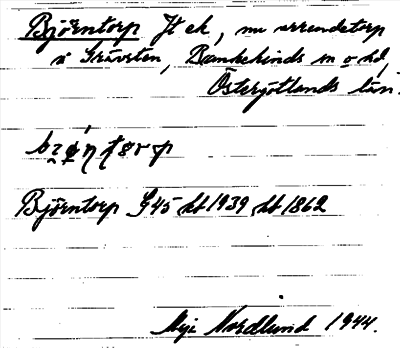 Björntorp Jt ek, nu arrendetorp
å Grävsten, Bankekinds sn o hd,
Östergötlands län.
Björntorp G45 hb 1939 hb 1862
Nordlund 1944.